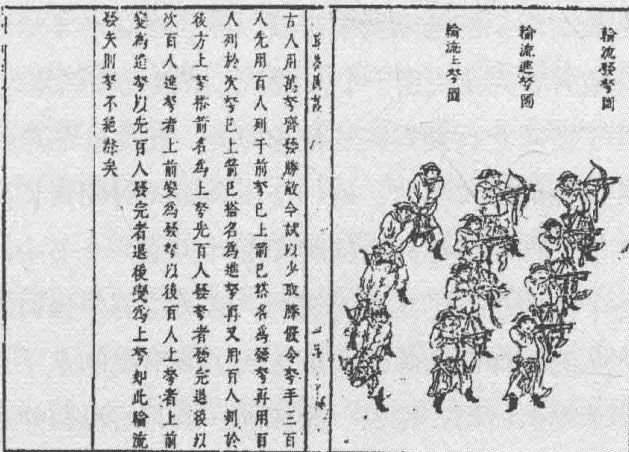 輪流發弩圖
輪流進弩圖
輪流上弩圖
古人用萬弩齊發勝敵今試以少取勝假令弩手三百
人先用百人列于前弩已上箭已搭名為發弩再用百
人列於次弩已上箭已搭名為進弩再又用百人列於
後方上弩搭箭名為上弩先百人發弩者發完退後以
次百人進弩者上前變為發弩以後百人上弩者上前
變為進弩以先百人發完者退後變為上弩如此輪流
發矢則弩不絕聲矣